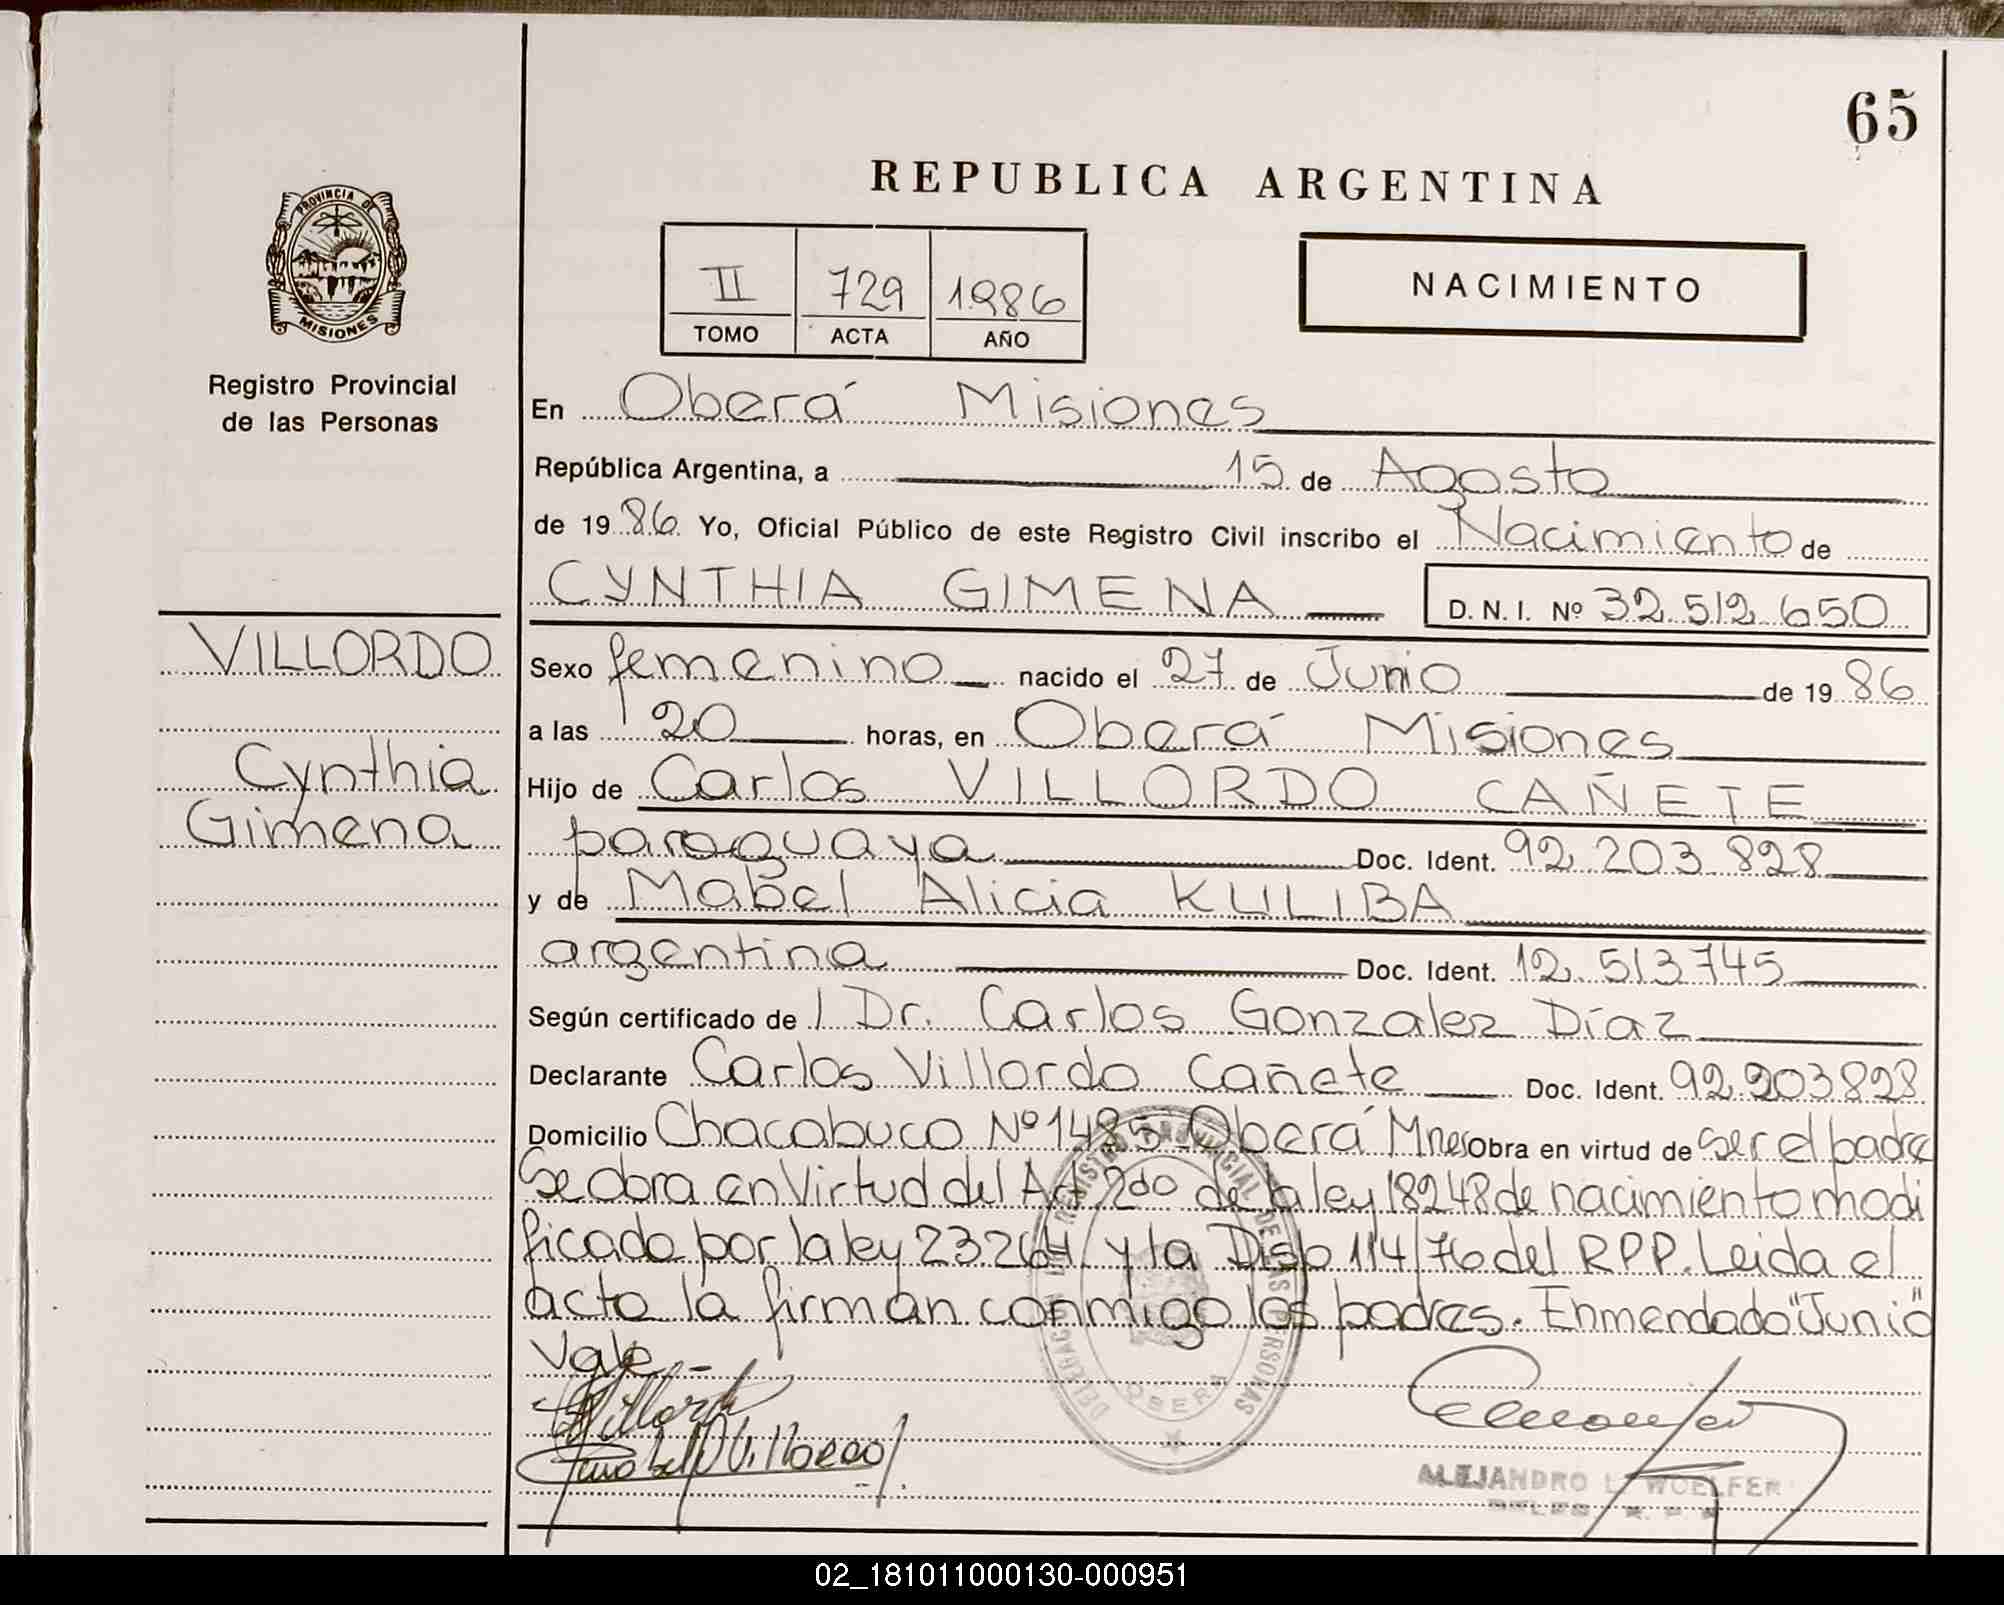 65
REPUBLICA ARGENTINA
PROVINCIA DE
MISIONES
II 729 1986
TOMO ACTA AÑO
NACIMIENTO
Registro Provincial
de las Personas
En Oberá Misiones
República Argentina, a 15 de Agosto
de 1986 Yo, Oficial Público de este Registro Civil inscribo el Nacimiento de
CYNTHIA GIMENA D. N. I. Nº 32.512.650
VILLORDO
Cynthia
Gimena
Sexo femenino nacido el 27 de Junio de 1986
a las 20 horas, en Oberá Misiones
Hijo de Carlos VILLORDO CAÑETE
paraguaya Doc. Ident. 92.203.828
y de Mabel Alicia KULIBA
argentina Doc. Ident. 12.513745
Según certificado de Dr. Carlos Gonzalez Díaz
Declarante Carlos Villordo Cañete Doc. Ident. 92.203828
Domicilio Chacabuco Nº 1485 Oberá Mnes Obra en virtud de ser el padre
Se obra en Virtud del Art 2do de la ley 18248 de nacimiento modi
ficado por la ley 23.264 y la Disp 114/76 del RPP. Leida el
acta la firman conmigo los padres. Enmendado "Junio"
Vale -
DELEGACION REGISTRO PROVINCIAL DE LAS PERSONAS
OBERA
ALEJANDRO L. WOELFER
02_181011000130-000951